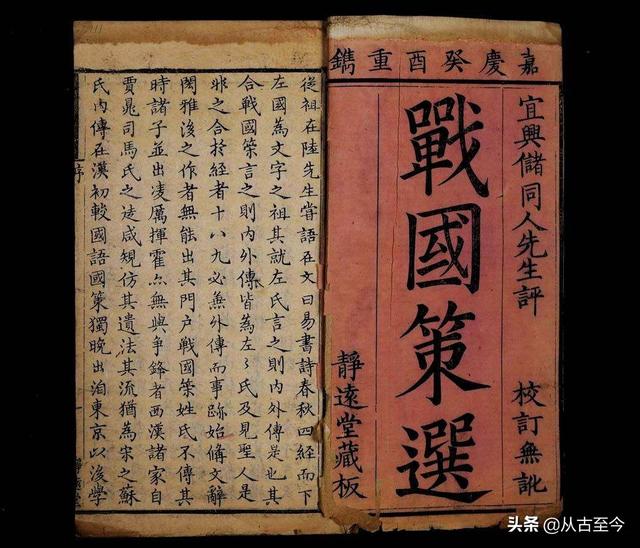 嘉慶癸酉重鐫
宜興儲同人先生評
校訂無訛
戰國策選
靜遠堂藏板
從祖在陸先生嘗語在文曰易書詩春秋四經而下
左國為文字之祖其就左氏言之則內外傳是也其
合戰國策言之則內外傳皆為左々氏及見聖人是
非之合於經者十八九必無外傳而事跡始偹文辭
閎雅後之作者無能出其門戶戰國策姓氏不傳其
時諸子並出凌厲揮霍無與爭鋒者西漢諸家自
賈鼂司馬氏之徒咸規仿其遺法其流猶為宋之蘇
氏內傳在漢初較國語國策獨晚出洎東京以後學
序
头条 @从古至今